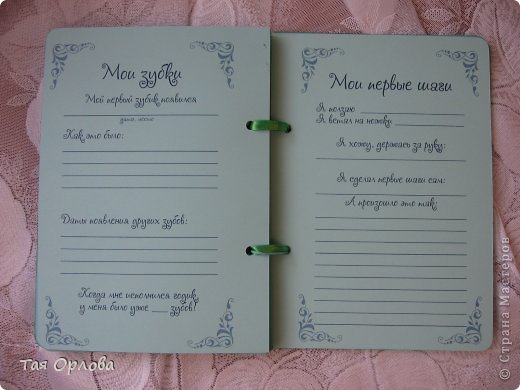 Мои зубки
Мой первый зубик появился
дата, место
Как это было:
Даты появления других зубов:
Когда мне исполнился годик,
у меня было уже ___ зубов!
Мои первые шаги
Я ползаю
Я встал на ножки
Я хожу, держась за руку:
Я сделал первые шаги сам:
А произошло это так:
Тая Орлова
© Страна Мастеров